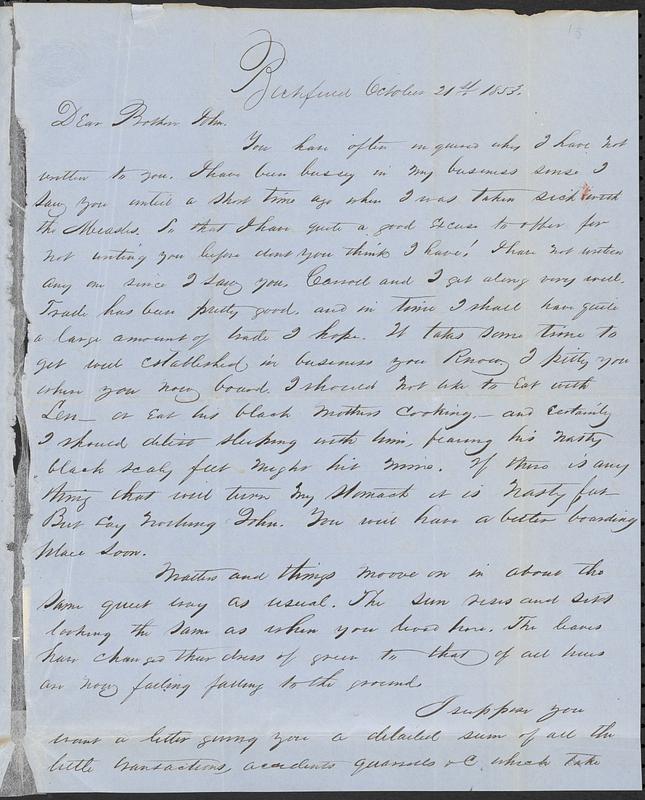 Richfield October 21st 1853.
Dear Brother John.
You have often inquired why I have not
written to you. I have been bussy in my business sense I
saw you until a short time ago when I was taken sick with
the Measles. So that I have quite a good Excuse to offer for
not writing you before dont you think I have! I have not written
any one since I saw you. Carroll and I get along very well.
Trade has been pretty good, and in time I shall have quite
a large amount of trade I hope. It takes some time to
get well established in business you Know, I pitty you
where you now board. I should not like to Eat with
Len— or Eat his black Mothers Cooking,— and Certainly
I should detest sleeping with him, fearing his Nasty
black scaly feet might hit mine. If there is any
thing that will turn my stomach it is Nasty feet
But say nothing John. You will have a better boarding
place soon.
Matters and things moove on in about the
same quiet way as usual. The sun rises and sets
looking the same as when you lived here. The leaves
have changed their dress of green to that of all hues
are now fading falling to the ground.
I suppose you
want a letter giving you a detailed sum of all the
little transactions, accidents quarrels &C. which take